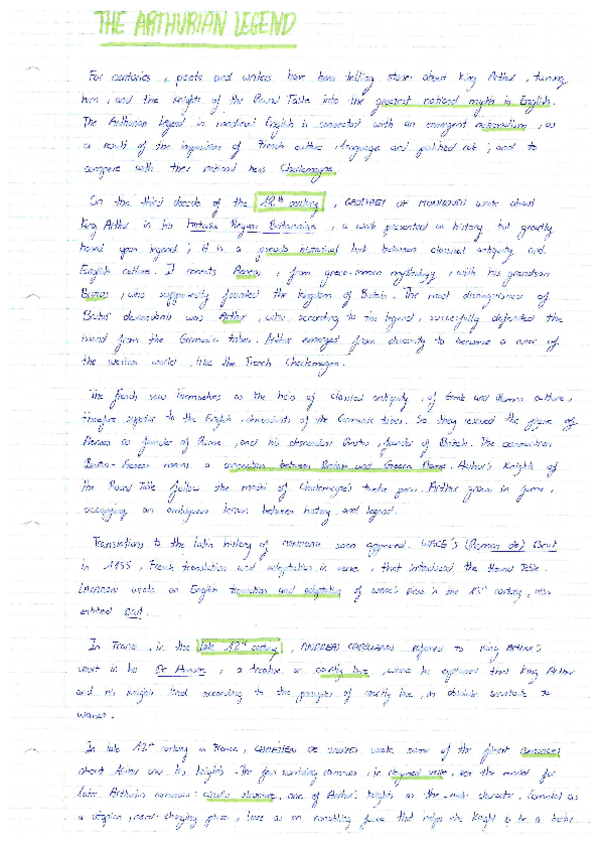 THE ARTHURIAN LEGEND
For centuries, poets and writers have been telling stories about King Arthur, turning
him, and the knights of the Round Table into the greatest national myth in English.
The Arthurian legend in medieval English is connected with an emergent nationalism, as
a result of the imposition of French culture, language and political rule; and to
compete with their national hero Charlemagne.
On the third decade of the 12th century, GEOFFREY OF MONMOUTH wrote about
King Arthur in his Historia Regum Britanniae, a work presented as history but greatly
based upon legend; it is a pseudo historical link between classical antiquity and
English culture. It connects Aeneas, from greco-roman mythology, with his grandson
Brutus, who supposedly founded the kingdom of Britain. The most distinguished of
Brutus' descendants was Arthur, who according to the legend, succesfully defended the
island from the Germanic tribes. Arthur emerged from obscurity to become a ruler of
the western world, like the French Charlemagne.
The French saw themselves as the heirs of classical antiquity, of Greek and Roman culture,
therefore superior to the English, descendants of the Germanic tribes. So they rescued the figure of
Aeneas as founder of Rome, and his descendant Brutus, founder of British. The
Brutus-Aeneas means a connection between Britain and Greece Rome. Arthur's Knights of
the Round Table follow the model of Charlemagne's twelve peers. Arthur grows in fame,
occupying an ambiguous between history and legend.
Translations to the Latin history of Monmouth soon appeared. WACE'S (Roman de) Brut
in 1155, French translation and adaptation in verse, that introduced the Round Table.
LAYAMON wrote an English translation and adaptation of Wace's in the century, also
entitled Brut.
In France, in the late 12th century, ANDREAS CAPELLANUS refered to King Arthur's
court in his De Amore, a treatise on courtly love, where he explained that King Arthur
and his knights lived according to the precepts of courtly love, in absolute servitude to
women.
In late 12th century in France, CHRÉTIEN DE TROYES wrote some of the finest romances
about Arthur and his knights. The four surviving romances, in rhymed verse, set the model for
later Arthurian romances: one of Arthur's knights as the main character, Camelot as
a utopian, name changing place, love as an ennobling force that helps the knight to be a better